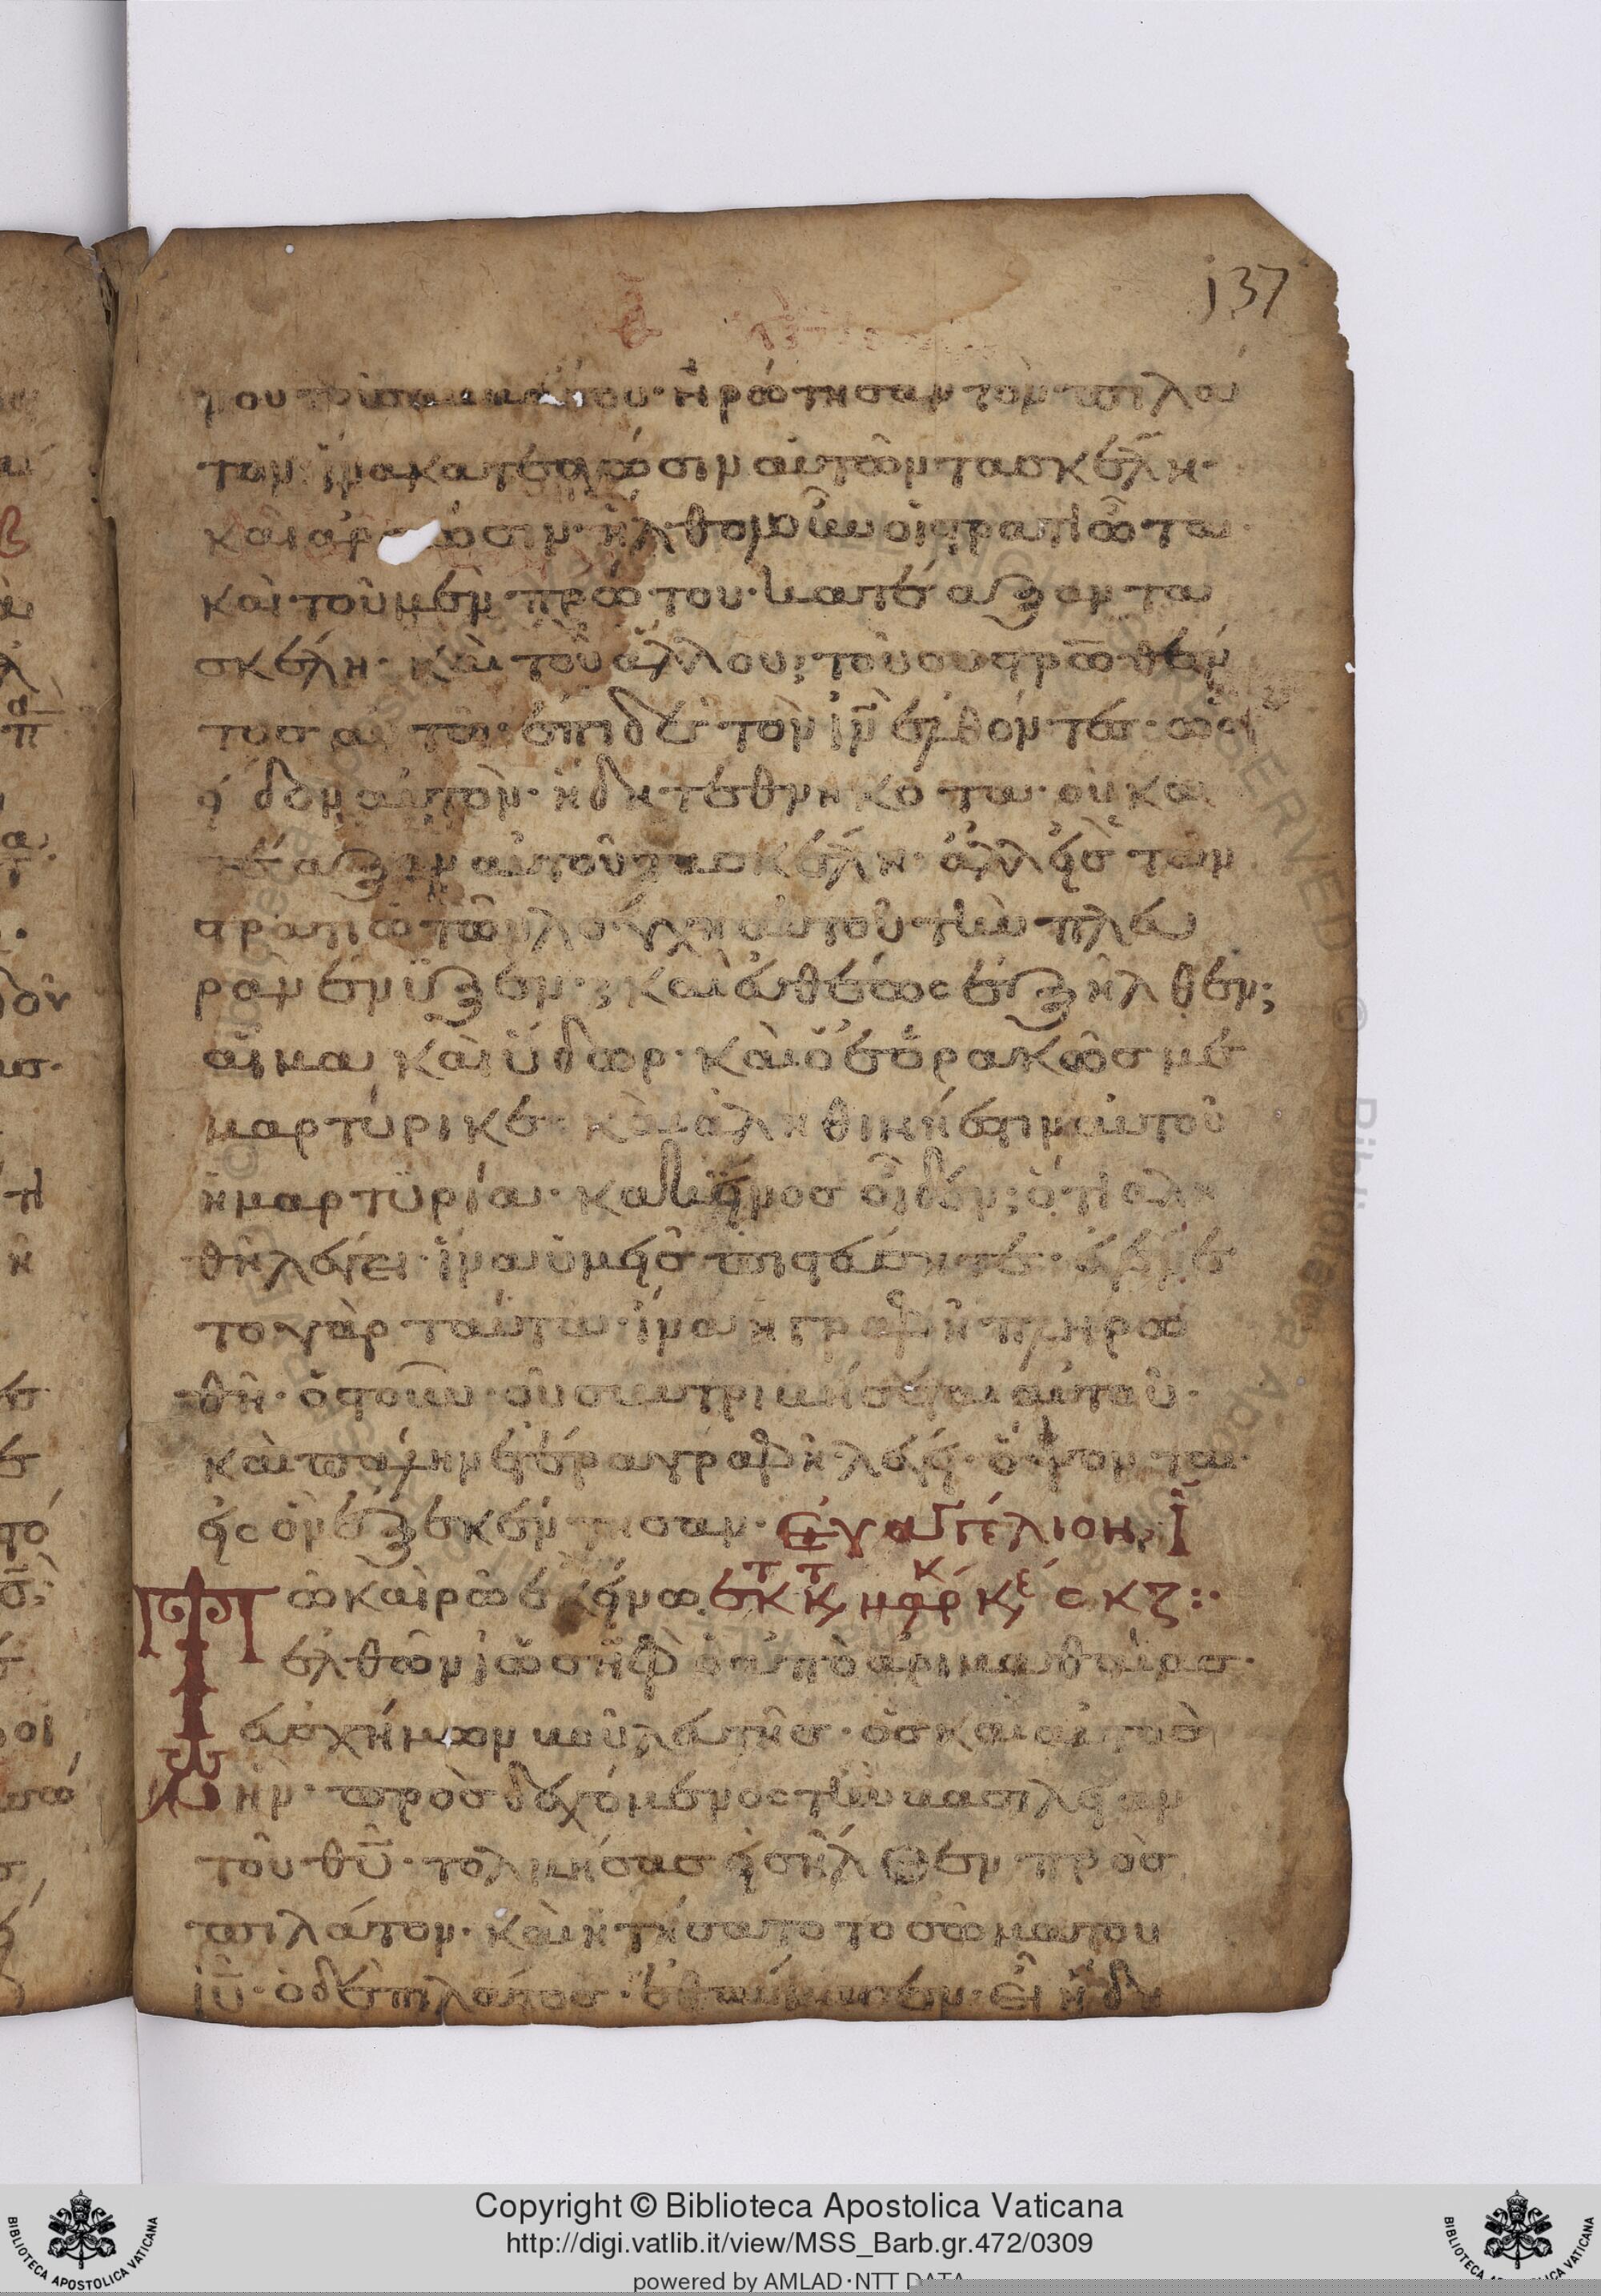 137
του σαββάτου· ἠρώτησαν τὸν πιλάτον
τον· ἵνα κατεαγῶσιν αὐτῶν τα σκέλη·
καὶ ἀρθῶσιν· ἦλθον οὖν οἱ στρατιῶται
καὶ τοῦ μὲν πρώτου· κατέαξαν τα
σκέλη· καὶ τοῦ ἄλλου· τοῦ συστρωθέν
τος αὐτῶ· ἐπὶ δὲ τὸν ἰν̄ ἐλθόντες· ὡς
εἶδον αὐτὸν· ἤδη τεθνηκότα· οὐ κα
τέαξαν αὐτοῦ τα σκέλη· ἀλλ εἷς τῶν
στρατιωτῶν λόγχη αὐτοῦ τὴν πλευ
ρὰν ἔνυξεν· καὶ εὐθέως ἐξῆλθεν;
αἷμα καὶ ὕδωρ· καὶ ὁ ἑορακὼς με
μαρτύρικε· καὶ ἀληθινή ἐστιν αὐτοῦ
ἡ μαρτυρία· κακεῖνος οἶδεν; ὅτι αλη
θῆ λέγει· ἵνα ὑμεῖς πιστεύσητε· ἐγένε
το γὰρ ταῦτα· ἵνα ἡ γραφὴ πληρω
θῆ· ὀστοῦν οὐ συντριβήσεται αὐτοῦ·
καὶ πάλην ἑτέρα γραφὴ λέγει· ὄψονται·
εἰς ὃν ἐξεκέντησαν· Εὐαγγέλιον, ϊ
Τῶ καιρῶ ἐκείνω. ἐκ τ κ τ μαρκ κε σκζ:·
ἐλθὼν ἰωσὴφ ὁ ἀπὸ ἀριμαθαίας·
εὐσχήμων βουλευτῆς· ὃς καὶ αὐτὸς
ἦν· προσδεχόμενος τὴν βασιλείαν
τοῦ θῦ· τολμήσας εἰσῆλθεν πρὸς
πιλάτον· καὶ ἠτήσατο το σῶμα του
ἰῦ· ὁ δὲ πιλάτος· ἐθαύμασεν· εἰ ἤδη
Copyright © Biblioteca Apostolica Vaticana
http://digi.vatlib.it/view/MSS_Barb.gr.472/0309
powered by AMLAD·NTT DATA
BIBLIOTECA APOSTOLICA VATICANA
BIBLIOTECA APOSTOLICA VATICANA